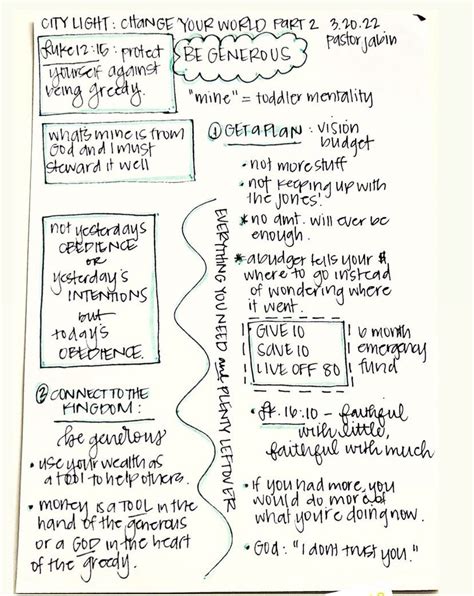 CITY LIGHT: CHANGE YOUR WORLD PART 2 3.20.22
Pastor Jabin
Luke 12:15: protect
yourself against
being greedy.
BE GENEROUS
"mine" = toddler mentality
what's mine is from
God and I must
steward it well
① GET A PLAN: vision
budget
• not more stuff
• not keeping up with
the Jones'
* no amt. will ever be
enough.
* a budget tells your $
where to go instead
of wondering where
it went.
GIVE 10
SAVE 10
LIVE OFF 80
6 month
emergency
fund
• Lk. 16:10 - faithful
with little,
faithful with much
• if you had more, you
would do more of
what you're doing now.
• God: "I don't trust you."
EVERYTHING YOU NEED and PLENTY LEFTOVER
not yesterday's
OBEDIENCE
OR
yesterday's
INTENTIONS
but
today's
OBEDIENCE.
② CONNECT TO THE
KINGDOM:
be generous
• use your wealth as
a TOOL to help others.
• money is a TOOL in the
hand of the generous
or a GOD in the heart
of the greedy.